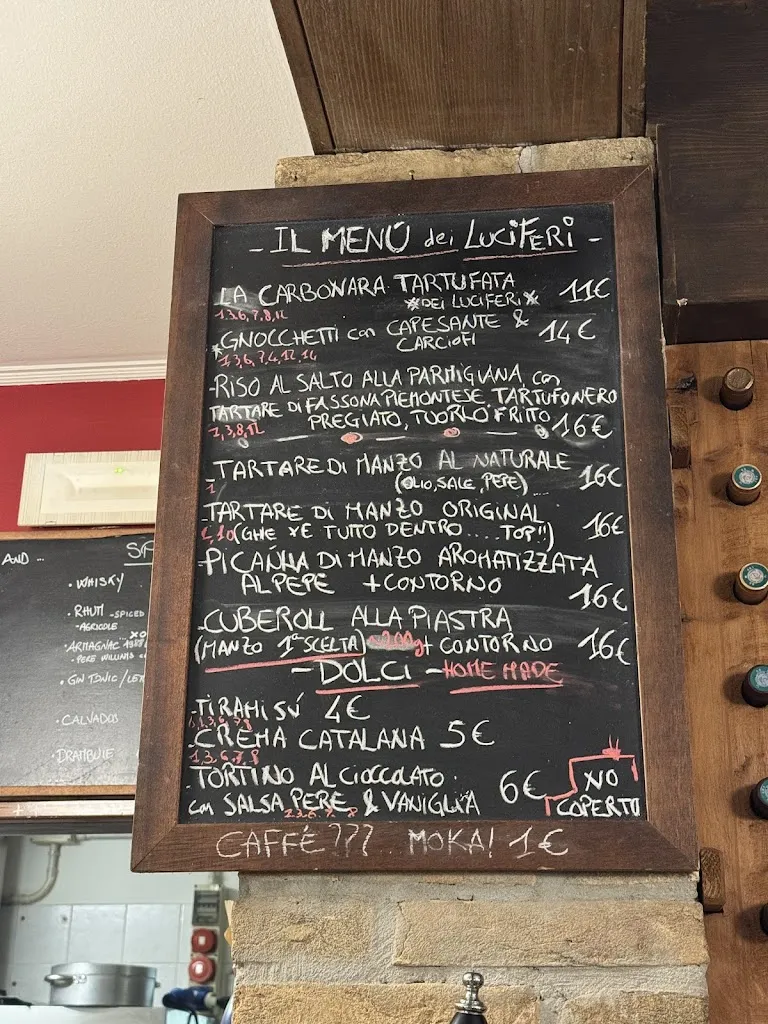 - IL MENÚ dei LUCIFERI -
- LA CARBONARA TARTUFATA 11€
*DEI LUCIFERI*
1,3,6,7,8,12
GNOCCHETTI con CAPESANTE & 14€
CARCIOFI
1,3,6,7,4,12,14
- RISO AL SALTO ALLA PARMIGIANA, con
TARTARE DI FASSONA PIEMONTESE, TARTUFO NERO
PREGIATO, TUORLO FRITTO 16€
1,3,8,12
- TARTARE DI MANZO AL NATURALE 16€
(OLIO, SALE, PEPE)
- TARTARE DI MANZO ORIGINAL 16€
1,10 (GHE XE TUTTO DENTRO.... TOP!!)
- PICANHA DI MANZO AROMATIZZATA
AL PEPE + CONTORNO 16€
- CUBEROLL ALLA PIASTRA
(MANZO 1ª SCELTA) ~200g + CONTORNO 16€
- DOLCI - HOME MADE
- TIRAMISÚ 4€
- CREMA CATALANA 5€
1,3,6,7,8
- TORTINO AL CIOCCOLATO 6€
con SALSA PERE & VANIGLIA
NO
COPERTO
CAFFÉ??? .. MOKA! 1€
AND ...
• WHISKY
• RHUM - SPICED
- AGRICOLE
• ARMAGNAC
XO
- PERE WILLIAMS
• GIN TONIC / LE
• CALVADOS
• DRAMBUIE